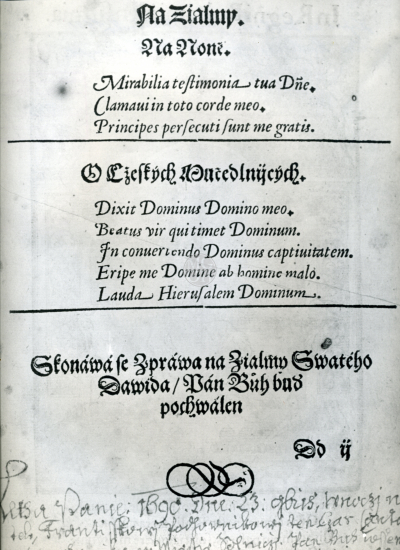 Na Zialmy.
Na Noně.
Mirabilia testimonia tua Dn̄e.
Clamaui in toto corde meo.
Principes persecuti sunt me gratis.
O Cżeských Mučedlnijcých.
Dixit Dominus Domino meo.
Beatus vir qui timet Dominum.
In conuertendo Dominus captiuitatem.
Eripe me Domine ab homine malo.
Lauda Hierusalem Dominum.
Skonáwá se Zpráwa na Zialmy Swatého
Dawida / Pán Bůh buď
pochwálen
Dd ij
1690. Dne: 23.